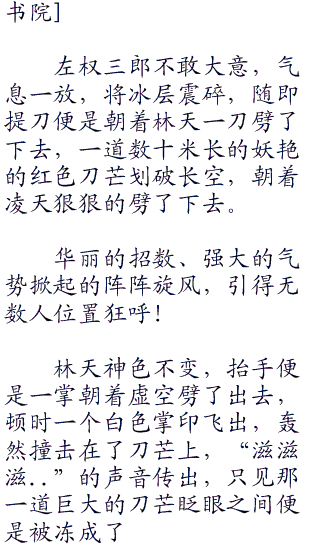 书院]
左权三郎不敢大意，气
息一放，将冰层震碎，随即
提刀便是朝着林天一刀劈了
下去，一道数十米长的妖艳
的红色刀芒划破长空，朝着
凌天狠狠的劈了下去。
华丽的招数、强大的气
势掀起的阵阵旋风，引得无
数人位置狂呼！
林天神色不变，抬手便
是一掌朝着虚空劈了出去，
顿时一个白色掌印飞出，轰
然撞击在了刀芒上，“滋滋
滋..”的声音传出，只见那
一道巨大的刀芒眨眼之间便
是被冻成了